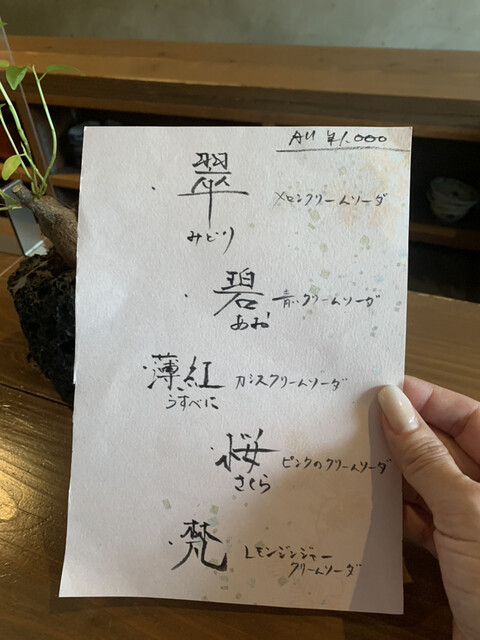 All ¥1,000
翠 メロンクリームソーダ
みどり
碧 青いクリームソーダ
あお
薄紅 カシスクリームソーダ
うすべに
桜 ピンクのクリームソーダ
さくら
梵 レモンジンジャー
クリームソーダ